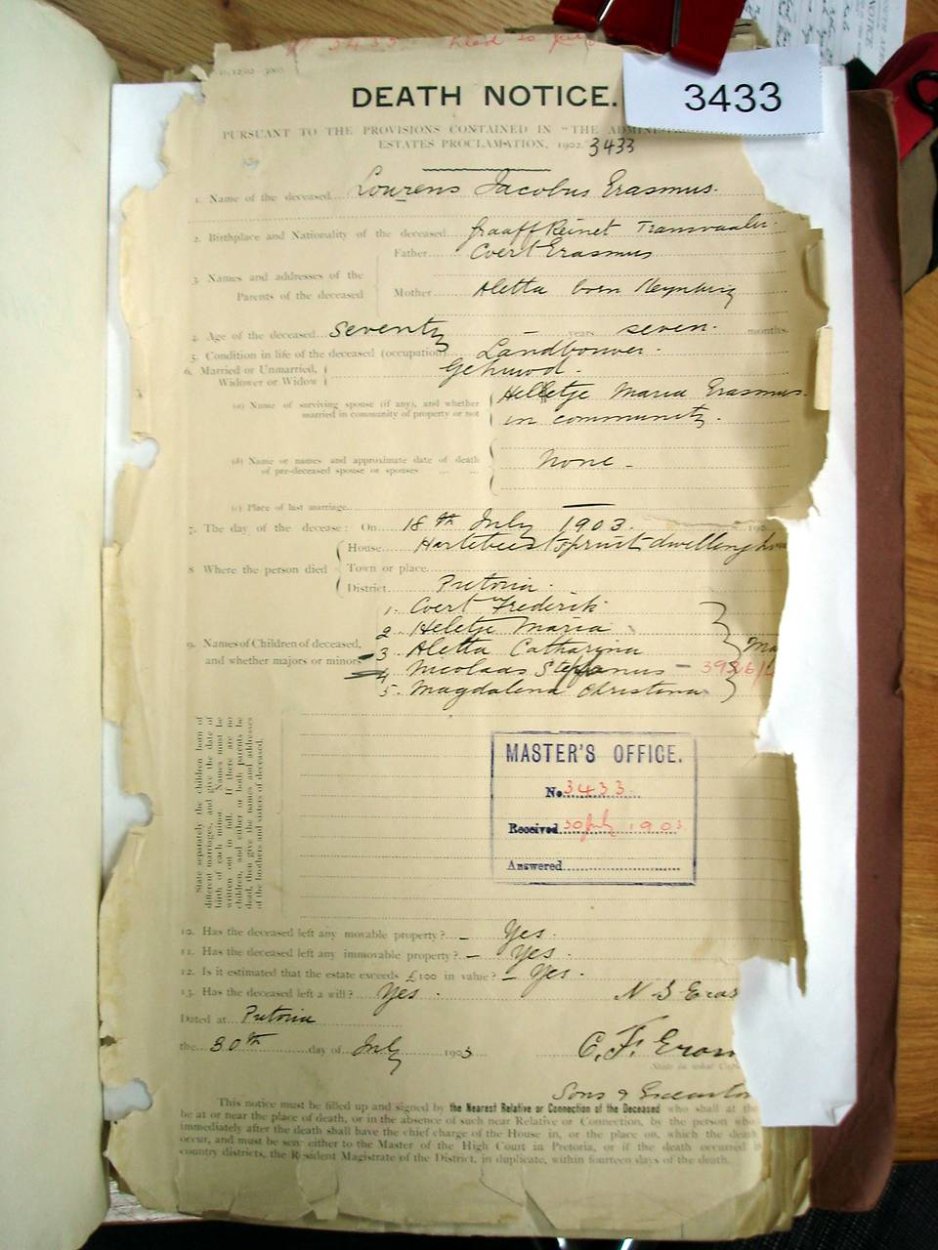 3433
DEATH NOTICE.
PURSUANT TO THE PROVISIONS CONTAINED IN "THE
ESTATES PROCLAMATION, 1902. 3433
1. Name of the deceased Lourens Jacobus Erasmus.
2. Birthplace and Nationality of the deceased Graaff Reinet Transvaaler.
3. Names and addresses of the Parents of the deceased
Father Coert Erasmus
Mother Aletta born
4. Age of the deceased Seventy – years seven. months.
5. Condition in life of the deceased (occupation) Landbouwer.
6. Married or Unmarried, Widower or Widow Gehuwd.
(a) Name of surviving spouse (if any), and whether married in community of property or not
Helletje Maria Erasmus
in community.
(b) Name or names and approximate date of death of pre-deceased spouse or spouses
None –
(c) Place of last marriage —
7. The day of the decease: On 18th July 1903.
8 Where the person died
House Hartebeestspruit dwelling
Town or place
District Pretoria.
9. Names of Children of deceased, and whether majors or minors
1. Coert Frederik
2. Heletje Maria
3 Aletta Catharina
4 Nicolaas Stefanus –
5. Magdalena Christina
State separately the children born of
different marriages, and give the date of
birth of each minor. Names must be
written out in full. If there are no
children, and either or both parents be
dead, then give the names and addresses
of the brothers and sisters of deceased.
MASTER'S OFFICE.
No. 3433
Received 30 July 1903
Answered
10. Has the deceased left any movable property? – Yes.
11. Has the deceased left any immovable property? – Yes.
12. Is it estimated that the estate exceeds £100 in value? – Yes.
13. Has the deceased left a will? Yes.
N S Eras
Dated at Pretoria
the 30th day of July 1903
C. F. Erasm
Sons &
This notice must be filled up and signed by the Nearest Relative or Connection of the Deceased who shall at the
be at or near the place of death, or in the absence of such near Relative or Connection, by the person who
immediately after the death shall have the chief charge of the House in, or the place on, which the death
occur, and must be sent either to the Master of the High Court in Pretoria, or if the death occurred
country districts, the Resident Magistrate of the District, in duplicate, within fourteen days of the death.